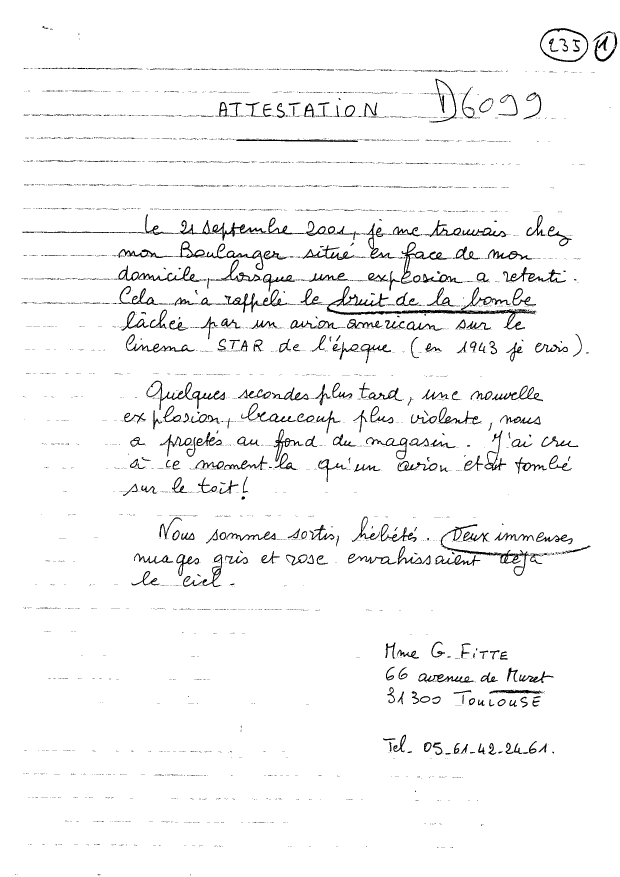 235 1
ATTESTATION D6099
Le 21 Septembre 2001, je me trouvais chez
mon Boulanger situé en face de mon
domicile, lorsque une explosion a retenti.
Cela m'a rappelé le bruit de la bombe
lâchée par un avion américain sur le
Cinema STAR de l'époque (en 1943 je crois).
Quelques secondes plus tard, une nouvelle
explosion, beaucoup plus violente, nous
a projetés au fond du magasin. J'ai cru
à ce moment-la qu'un avion était tombé
sur le toit!
Nous sommes sortis, hébétés. Deux immenses
nuages gris et rose envahissaient déja
le ciel.
Mme G. FITTE
66 avenue de Muret
31300 TOULOUSE
Tel. 05-61-42-24-61.